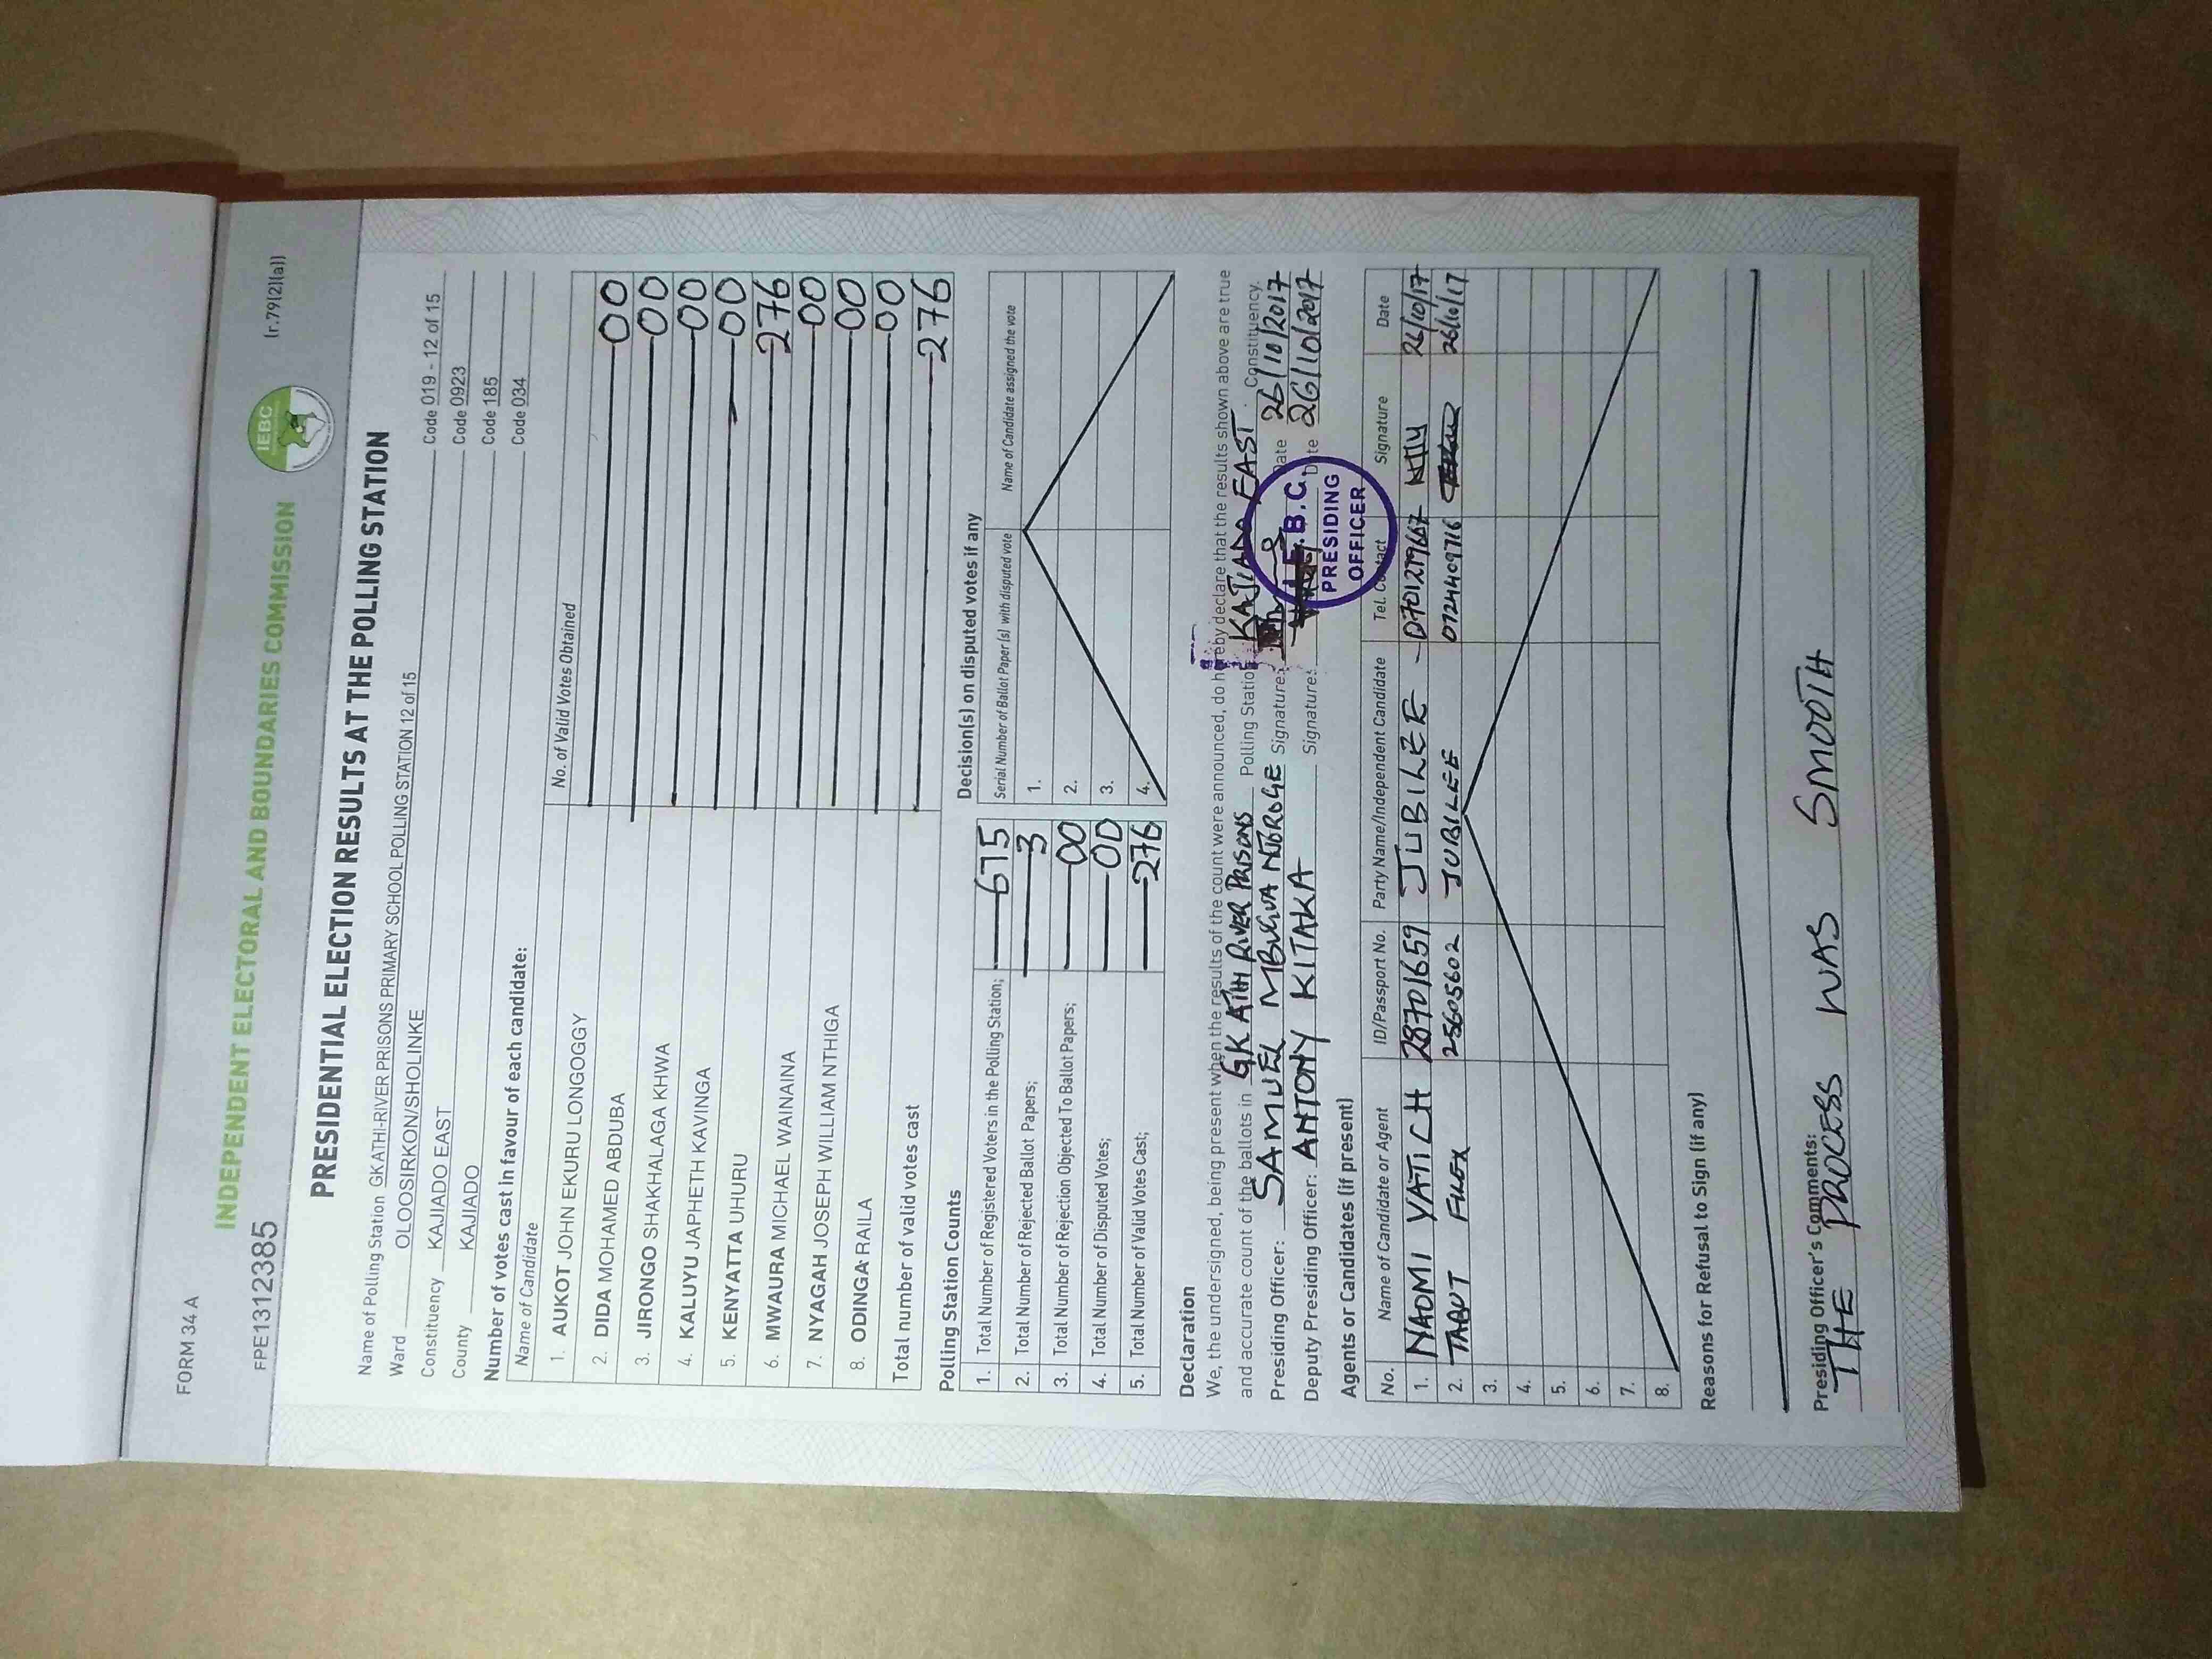 FORM 34 A
INDEPENDENT ELECTORAL AND BOUNDARIES COMMISSION
IEBC
(r.79(2)(a))
FPE1312385
PRESIDENTIAL ELECTION RESULTS AT THE POLLING STATION
Name of Polling Station GK ATHI-RIVER PRISONS PRIMARY SCHOOL POLLING STATION 12 of 15 Code 019 - 12 of 15
Ward OLOOSIRKON/SHOLINKE Code 0923
Constituency KAJIADO EAST Code 185
County KAJIADO Code 034
Number of votes cast in favour of each candidate:
Name of Candidate No. of Valid Votes Obtained
1. AUKOT JOHN EKURU LONGOGGY 00
2. DIDA MOHAMED ABDUBA 00
3. JIRONGO SHAKHALAGA KHWA 00
4. KALUYU JAPHETH KAVINGA 00
5. KENYATTA UHURU 276
6. MWAURA MICHAEL WAINAINA 00
7. NYAGAH JOSEPH WILLIAM NTHIGA 00
8. ODINGA RAILA 00
Total number of valid votes cast 276
Polling Station Counts
1. Total Number of Registered Voters in the Polling Station; 675
2. Total Number of Rejected Ballot Papers; 3
3. Total Number of Rejection Objected To Ballot Papers; 00
4. Total Number of Disputed Votes; 00
5. Total Number of Valid Votes Cast; 276
Decision(s) on disputed votes if any
Serial Number of Ballot Paper (s) with disputed vote Name of Candidate assigned the vote
1.
2.
3.
4.
Declaration
We, the undersigned, being present when the results of the count were announced, do hereby declare that the results shown above are true
and accurate count of the ballots in GK ATHI RIVER PRISONS Polling Station KAJIADO EAST Constituency.
Presiding Officer: SAMUEL MBUGUA NJOROGE Signature: Date 26/10/2017
Deputy Presiding Officer: ANTONY KITAKA Signature: Date 26/10/2017
I.E.B.C.
PRESIDING
OFFICER
Agents or Candidates (if present)
No. Name of Candidate or Agent ID/Passport No. Party Name/Independent Candidate Tel. Contact Signature Date
1. NAOMI YATICH 28701659 JUBILEE 0701279667 26/10/17
2. TABUT 25605602 JUBILEE 0724409716 26/10/17
3.
4.
5.
6.
7.
8.
Reasons for Refusal to Sign (if any)
Presiding Officer's Comments:
THE PROCESS WAS SMOOTH